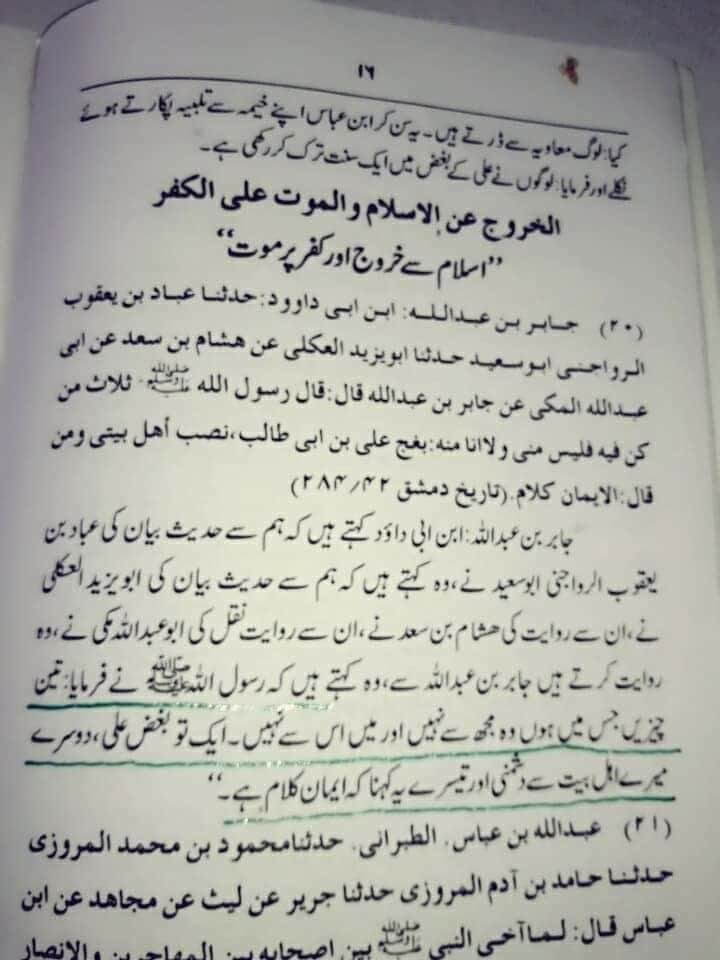 ١٦
کیا: لوگ معاویہ سے ڈرتے ہیں۔ یہ سن کر ابن عباس اپنے خیمہ سے تلبیہ پکارتے ہوئے
نکلے اور فرمایا: لوگوں نے علی کے بغض میں ایک سنت ترک کر رکھی ہے۔
الخروج عن الاسلام والموت علی الکفر
”اسلام سے خروج اور کفر پر موت“
(٢٠) جابر بن عبداللہ: ابن ابی داوود: حدثنا عباد بن یعقوب
الرواجنی ابو سعید حدثنا ابو یزید العکلی عن هشام بن سعد عن ابی
عبداللہ المکی عن جابر بن عبداللہ قال: قال رسول اللہ ﷺ ثلاث من
کن فیه فلیس منی ولا انا منه: بغج علی بن ابی طالب، نصب أهل بیتی ومن
قال: الایمان کلام. (تاریخ دمشق ٢٨٤/٤٢)
جابر بن عبداللہ: ابن ابی داؤد کہتے ہیں کہ ہم سے حدیث بیان کی عباد بن
یعقوب الرواجنی ابوسعید نے، وہ کہتے ہیں کہ ہم سے حدیث بیان کی ابو یزید العکلی
نے، ان سے روایت کی هشام بن سعد نے، ان سے روایت نقل کی ابوعبداللہ مکی نے، وہ
روایت کرتے ہیں جابر بن عبداللہ سے، وہ کہتے ہیں کہ رسول اللہ ﷺ نے فرمایا: تین
چیزیں جس میں ہوں وہ مجھ سے نہیں اور میں اس سے نہیں۔ ایک تو بغض علی، دوسرے
میرے اہل بیت سے دشمنی اور تیسرے یہ کہنا کہ ایمان کلام ہے۔“
(٢١) عبداللہ بن عباس. الطبرانی. حدثنا محمود بن محمد المروزی
حدثنا حامد بن آدم المروزی حدثنا جریر عن لیث عن مجاهد عن ابن
عباس قال: لما آخی النبی ﷺ بین اصحابه بین المهاجرین والانصار